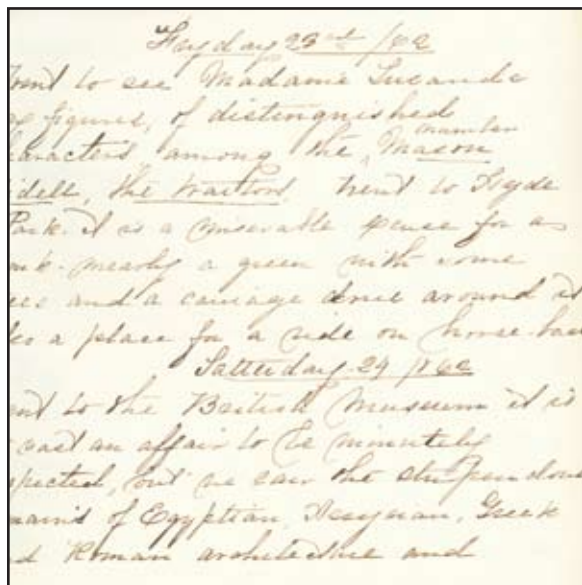 Fryday 23rd /62
Went to see Madame Tucands
figures, of distinguished
characters, among the, Mason
number
idell, the traitors. went to Hyde
Park it is a miserable spence for a
nearly a green with some
ees and a carriage drive around it
a place for a ride on horse bac
Satterday 24 /62
ent to the British Museum it is
vast an affair to be minutely
spected, but we saw the stupendous
mains of Egyptian, Assyrian, Greek
nd Roman architecture and